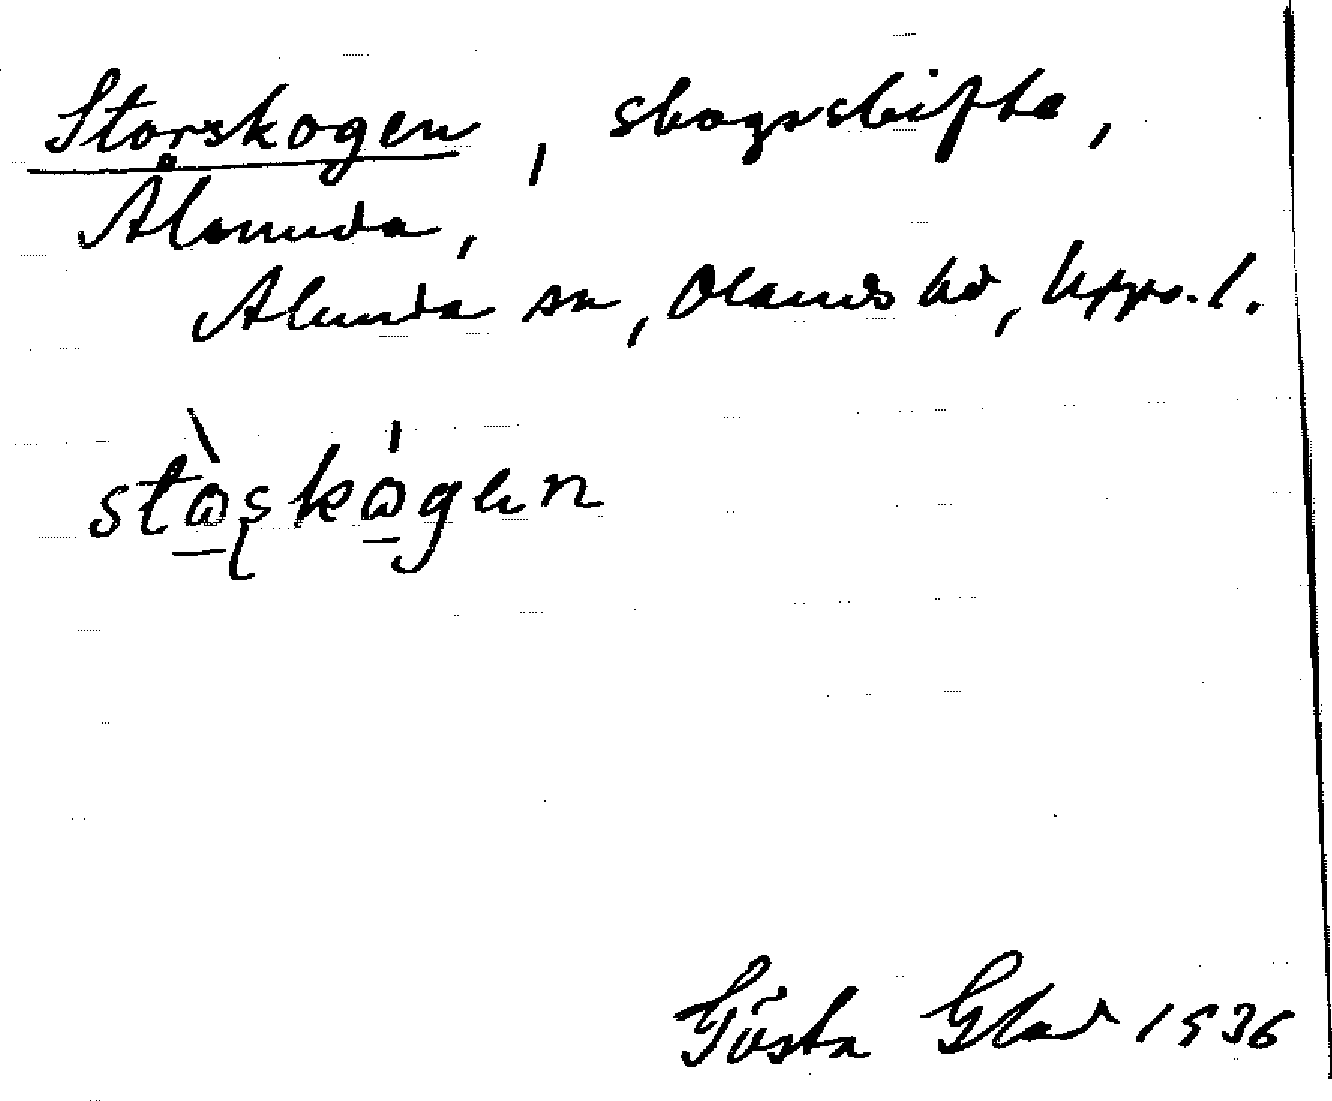 Storskogen, skogsskifte,
Ålsunda,
Alunda sn, Olands hd, Upps. l.
stɷ̀ʂkɷ́gen
Gösta Glad 1936